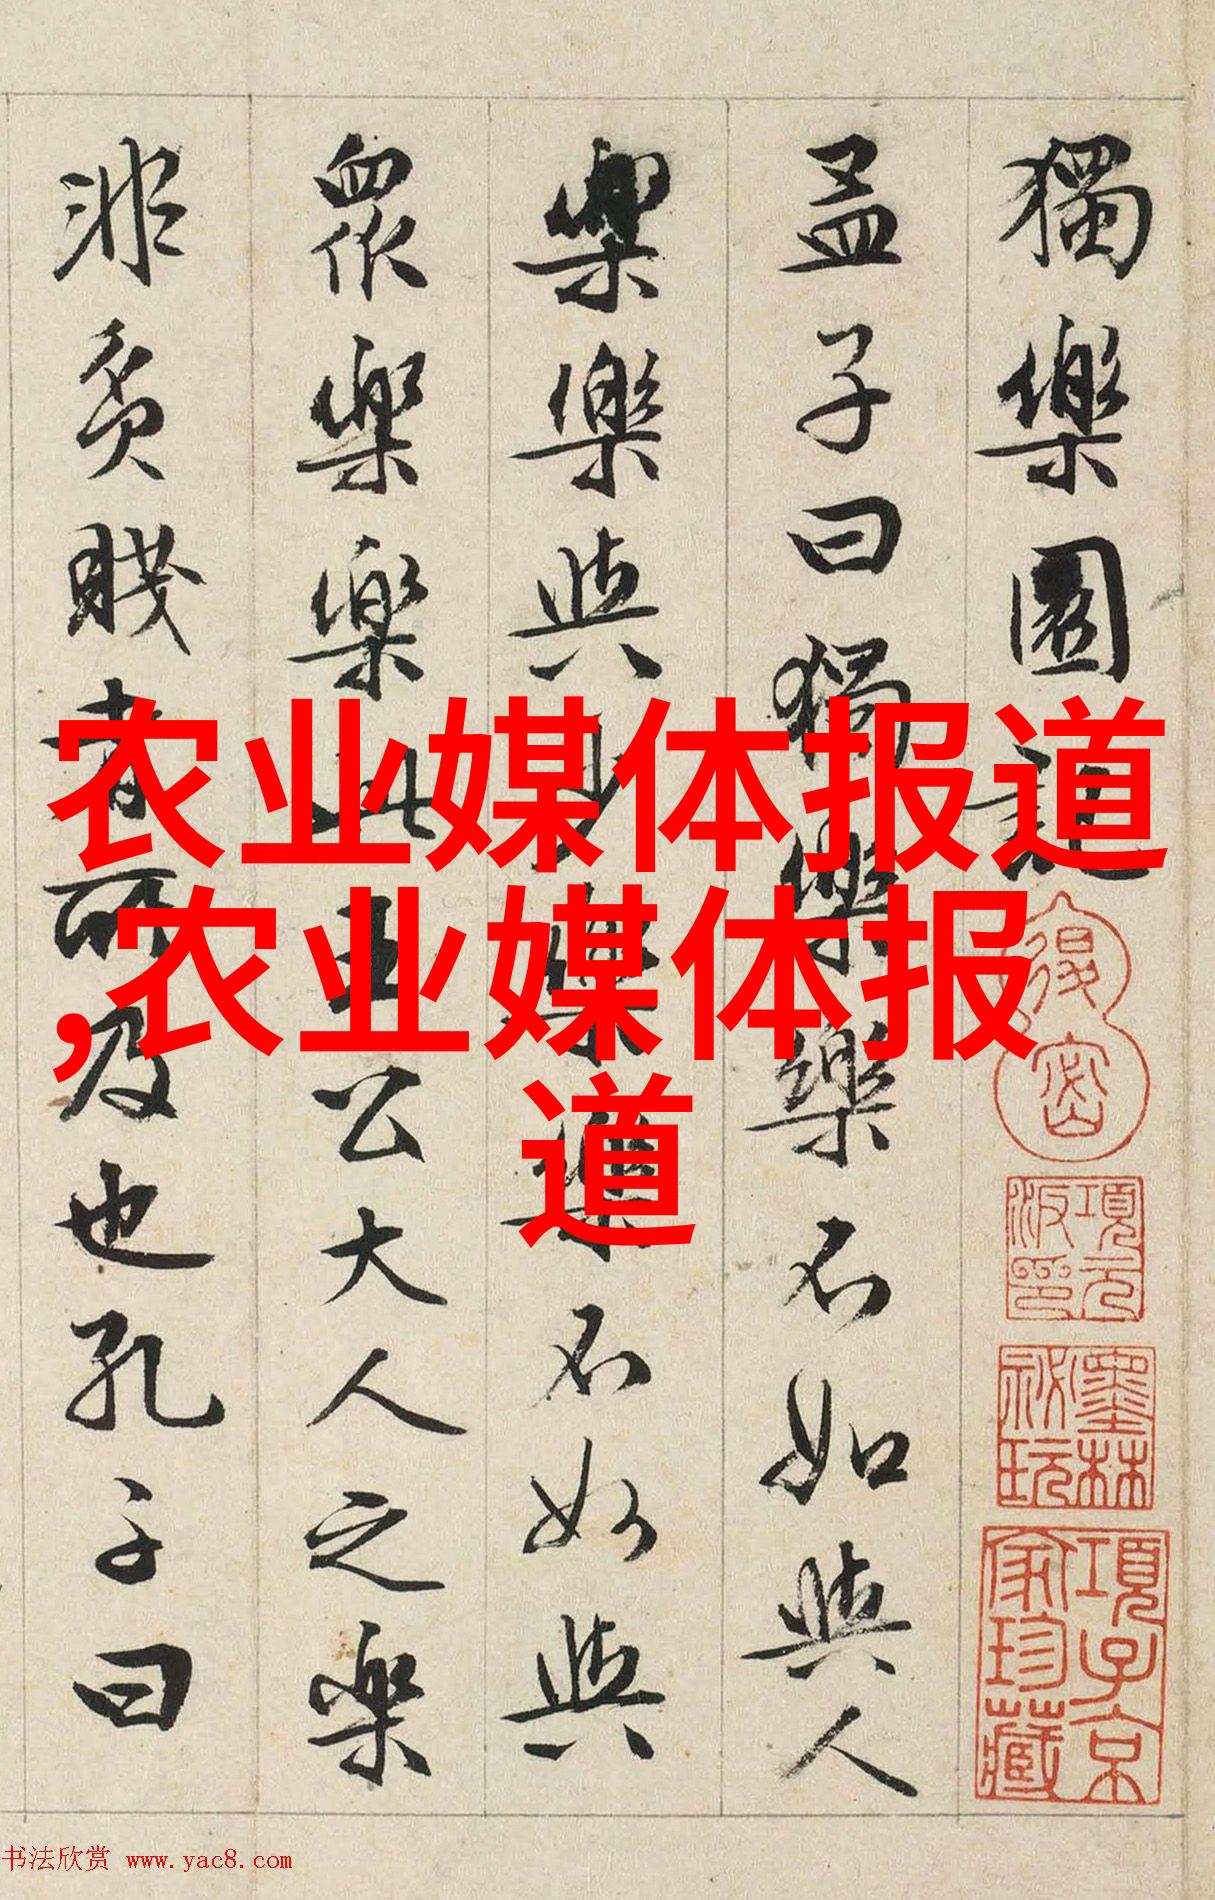 獨樂園記
孟子曰獨樂樂不如與人
樂樂與少樂樂不如與
眾樂樂此王公大人之樂
非貧賤者所及也孔子曰
項元汴印
墨林祕玩
項子京家珍藏
农业媒体报道
,农业媒体报
道
书法欣赏 www.yac8.com